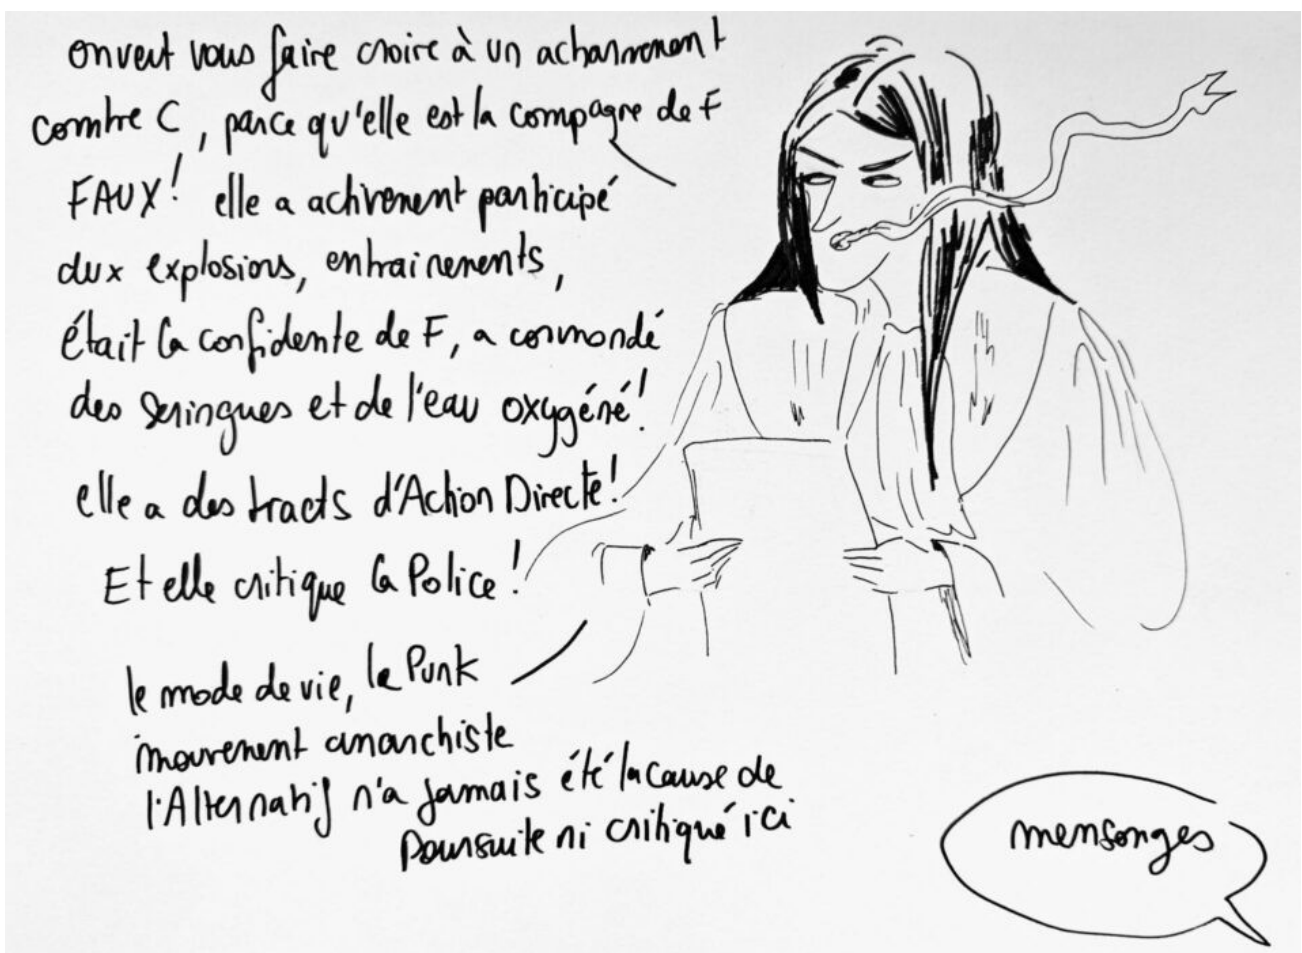 on veut vous faire croire à un acharnement
contre C, parce qu'elle est la compagne de F
FAUX! elle a activement participé
aux explosions, entrainements,
était la confidente de F, a commandé
des seringues et de l'eau oxygéné!
elle a des tracts d'Action Directe!
Et elle critique la Police!
le mode de vie, le Punk
mouvement anarchiste
l'Alternatif n'a jamais été la cause de
poursuite ni critiqué ici
mensonges